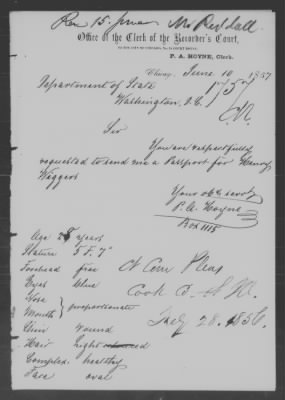 Rec 15. June Mr Reddall
Office of the Clerk of the Recorder's Court,
P. A. HOYNE, Clerk.
Chicag. June 10 1857
Department of State
Washington, D.C.
Sir
You are respectfully
requested to send me a Passport for Henry
Waggers
Your obt servt
P. A. Hoyne
Box 1115
Age 28 years
Stature 5 F. 7"
Forehead free
Eyes blue
Nose
Mouth } proportionate
Chin round
Hair light
Complex. healthy
Face oval
Ct Com Pleas
Cook
July 28. 1856.